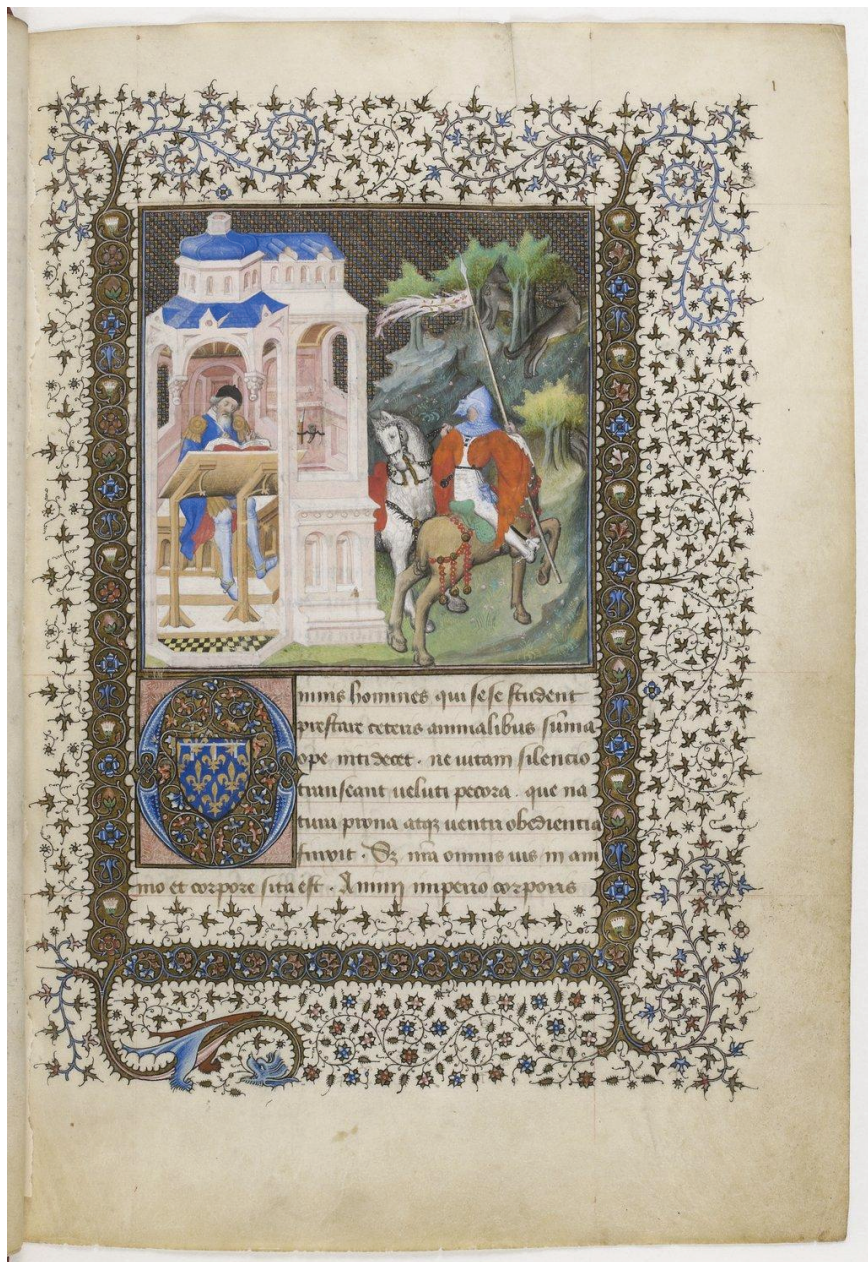 1
Omnis homines qui sese student
prestare ceteris animalibus sūma
ope niti decet . ne uitam silencio
transeant ueluti pecora . que na
tura prona atqꝫ uentri obediencia
finxit . Sꝫ nr̄a omnis uis in ani
mo et corpore sita est . Animi imperio corporis